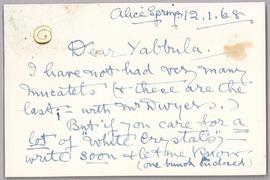 Alice Springs 12.1.68.
Dear Yabbula.
I have not had very many
muscatels (& these are the
last, - with Mr Dwyers.)
But if you care for a
lot of "white crystals" -
write soon & let me know
(one bunch enclosed)